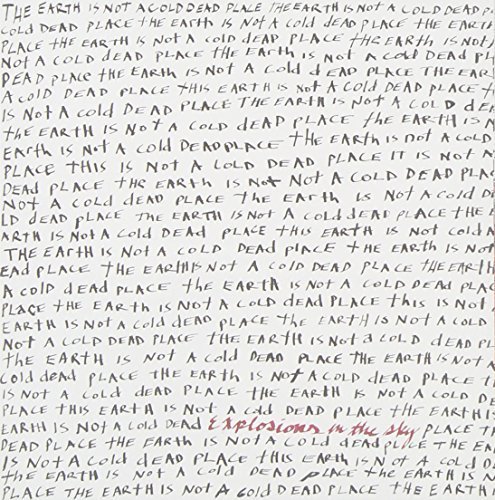 THE EARTH IS NOT A COLD DEAD PLACE THE EARTH IS NOT A COLD DEAD P
COLD DEAD PLACE THE EARTH IS NOT A COLD DEAD PLACE THE EARTH IS
PLACE THE EARTH IS NOT A COLD DEAD PLACE the EARTH IS NOT
NOT A COLD DEAD PLACE the Earth is NOT A COLD DEAD PL
DEAD PLACE the EARTH IS NOT A COLD dEAD PLACE THE EAR
A COLD DEAD PLACE THIS EARTH IS NOT A COLD DEAD PLACE
IS NOT A COLD DEAD PLACE THE EARTH IS NOT A COLD dEA
the EARTH IS NOT A COLD DEAD PLACE THE EARTH IS N
EARth IS NOT A COLD DEADPLACE THE EARTH IS not A COLD
PLACE THIS IS NOT A COLD DEAD PLACE IT IS NOT A
DEAD PLACE the EARTH IS NOT NOT A COLD DEAD PLAC
NOT A COLD DEAD PLACE THE EARTH IS NOT A COLD D
LD DEAD PLACE the EARTH IS NOT A COLD DEAD PLACE THE
ARTH IS NOT A COLD DEAD PLACE THIS EARTH IS NOT COLD A
THE EARTH IS NOT A COLD DEAD PLACE THE EARTH IS NOT
EAD PLACE THE EARTH IS NOT A COLD DEAD PLACE THE EARTH
A COLD DEAD PLACE THE EARTH IS NOT A COLD DEAD PLAC
PLACE THE EARTH IS NOT A COLD DEAD PLACE THIS IS NOT
EARTH IS NOT A COLD dEAD PLACE THE EARTH IS NOT A COLD
NOT A COLD DEAD PLACE THE EARTH IS NOT A COLD DEAD P
the EARTH IS NOT A COLD DEAD PLACE THE EARTH IS NOT A
COLD dEAD PLACE THE EARTH IS NOT A COLD DEAD PLACE T
IS NOT A COLD DEAD PLACE THE EARTH IS NOT A COLD DEAD
PLACE THIS EARTH IS NOT A COLD DEAD PLACE THE EARTH IS
EARTH IS NOT A COLD DEAD Explosions in the sky PLACE T
DEAD PLACE THE EARTH IS NOT A COLD dEAD PLACE THE EA
IS NOT A COLD DEAD PLACE THE EARTH IS NOT A COLD D
THE EARTH IS NOT A COLD DEAD PLACE THE EARTH IS N
DEAD PLACE THE EARTH IS NOT A COLD DEAD PLACE THE EARTH